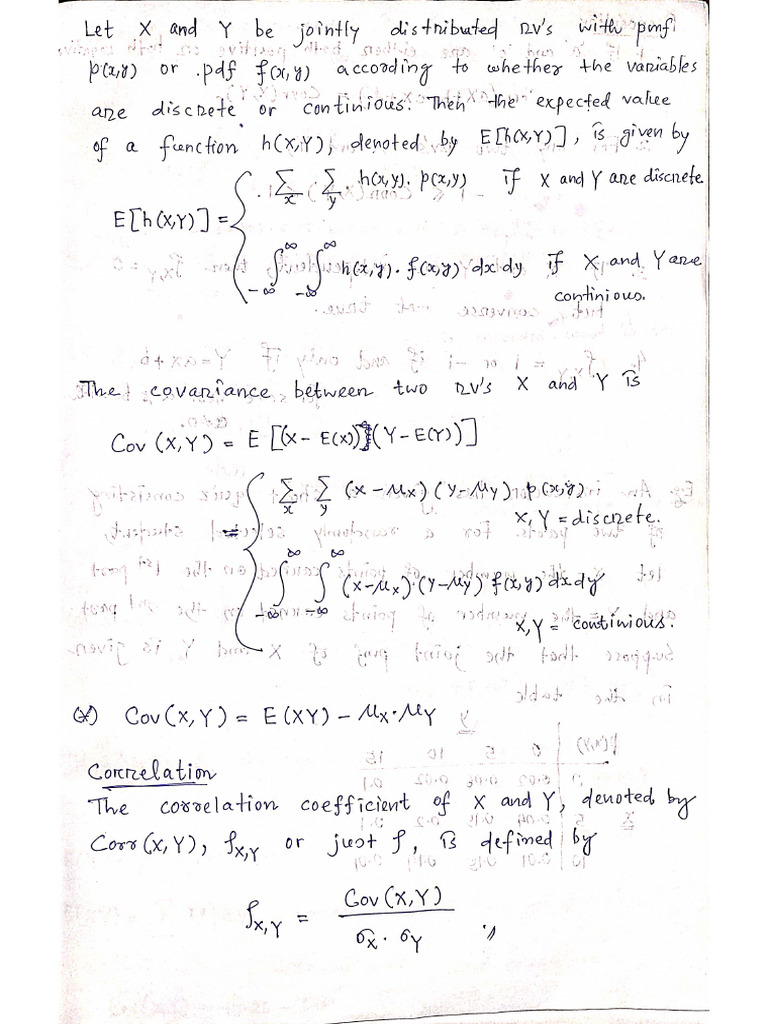 Let X and Y be jointly distributed RV's with pmf
p(x,y) or pdf f(x,y) according to whether the variables
are discrete or continious. Then the expected value
of a function h(X,Y), denoted by E[h(X,Y)], is given by
E[h(X,Y)] = { Σ_x Σ_y h(x,y). p(x,y) if X and Y are discrete
∫_{-∞}^{∞} ∫_{-∞}^{∞} h(x,y). f(x,y) dx dy if X and Y are
continious.
The covariance between two RV's X and Y is
Cov (X,Y) = E [(X - E(X)) (Y - E(Y))]
= { Σ_x Σ_y (x - μ_X) (y - μ_Y) p(x,y)
X, Y = discrete.
∫_{-∞}^{∞} ∫_{-∞}^{∞} (x-μ_X)·(y-μ_Y) f(x,y) dx dy
X, Y = continious.
(*) Cov(X,Y) = E(XY) - μ_X·μ_Y
Correlation
The correlation coefficient of X and Y, denoted by
Corr(X,Y), ρ_{X,Y} or just ρ, is defined by
ρ_{X,Y} = Cov(X,Y) / σ_X · σ_Y